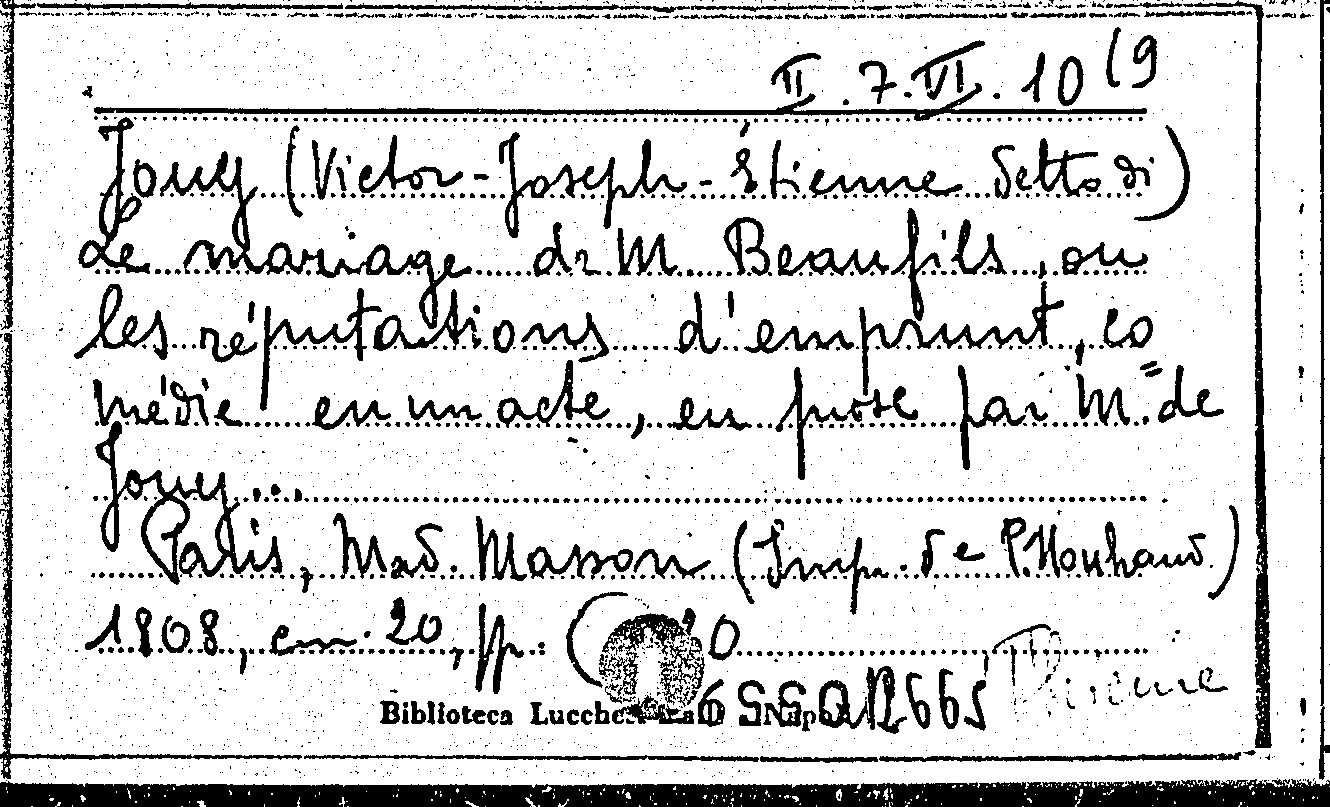 II. 7. VI. 10 (9
Jouy (Victor-Joseph-Étienne detto di)
Le mariage de M. Beaufils, ou
les réputations d'emprunt, co
médie en un acte, en prose par M.= de
Jouy...
Paris, Mad. Masson (Imp. de P.
1808, cm. 20, pp. 40
Biblioteca Lucchesi